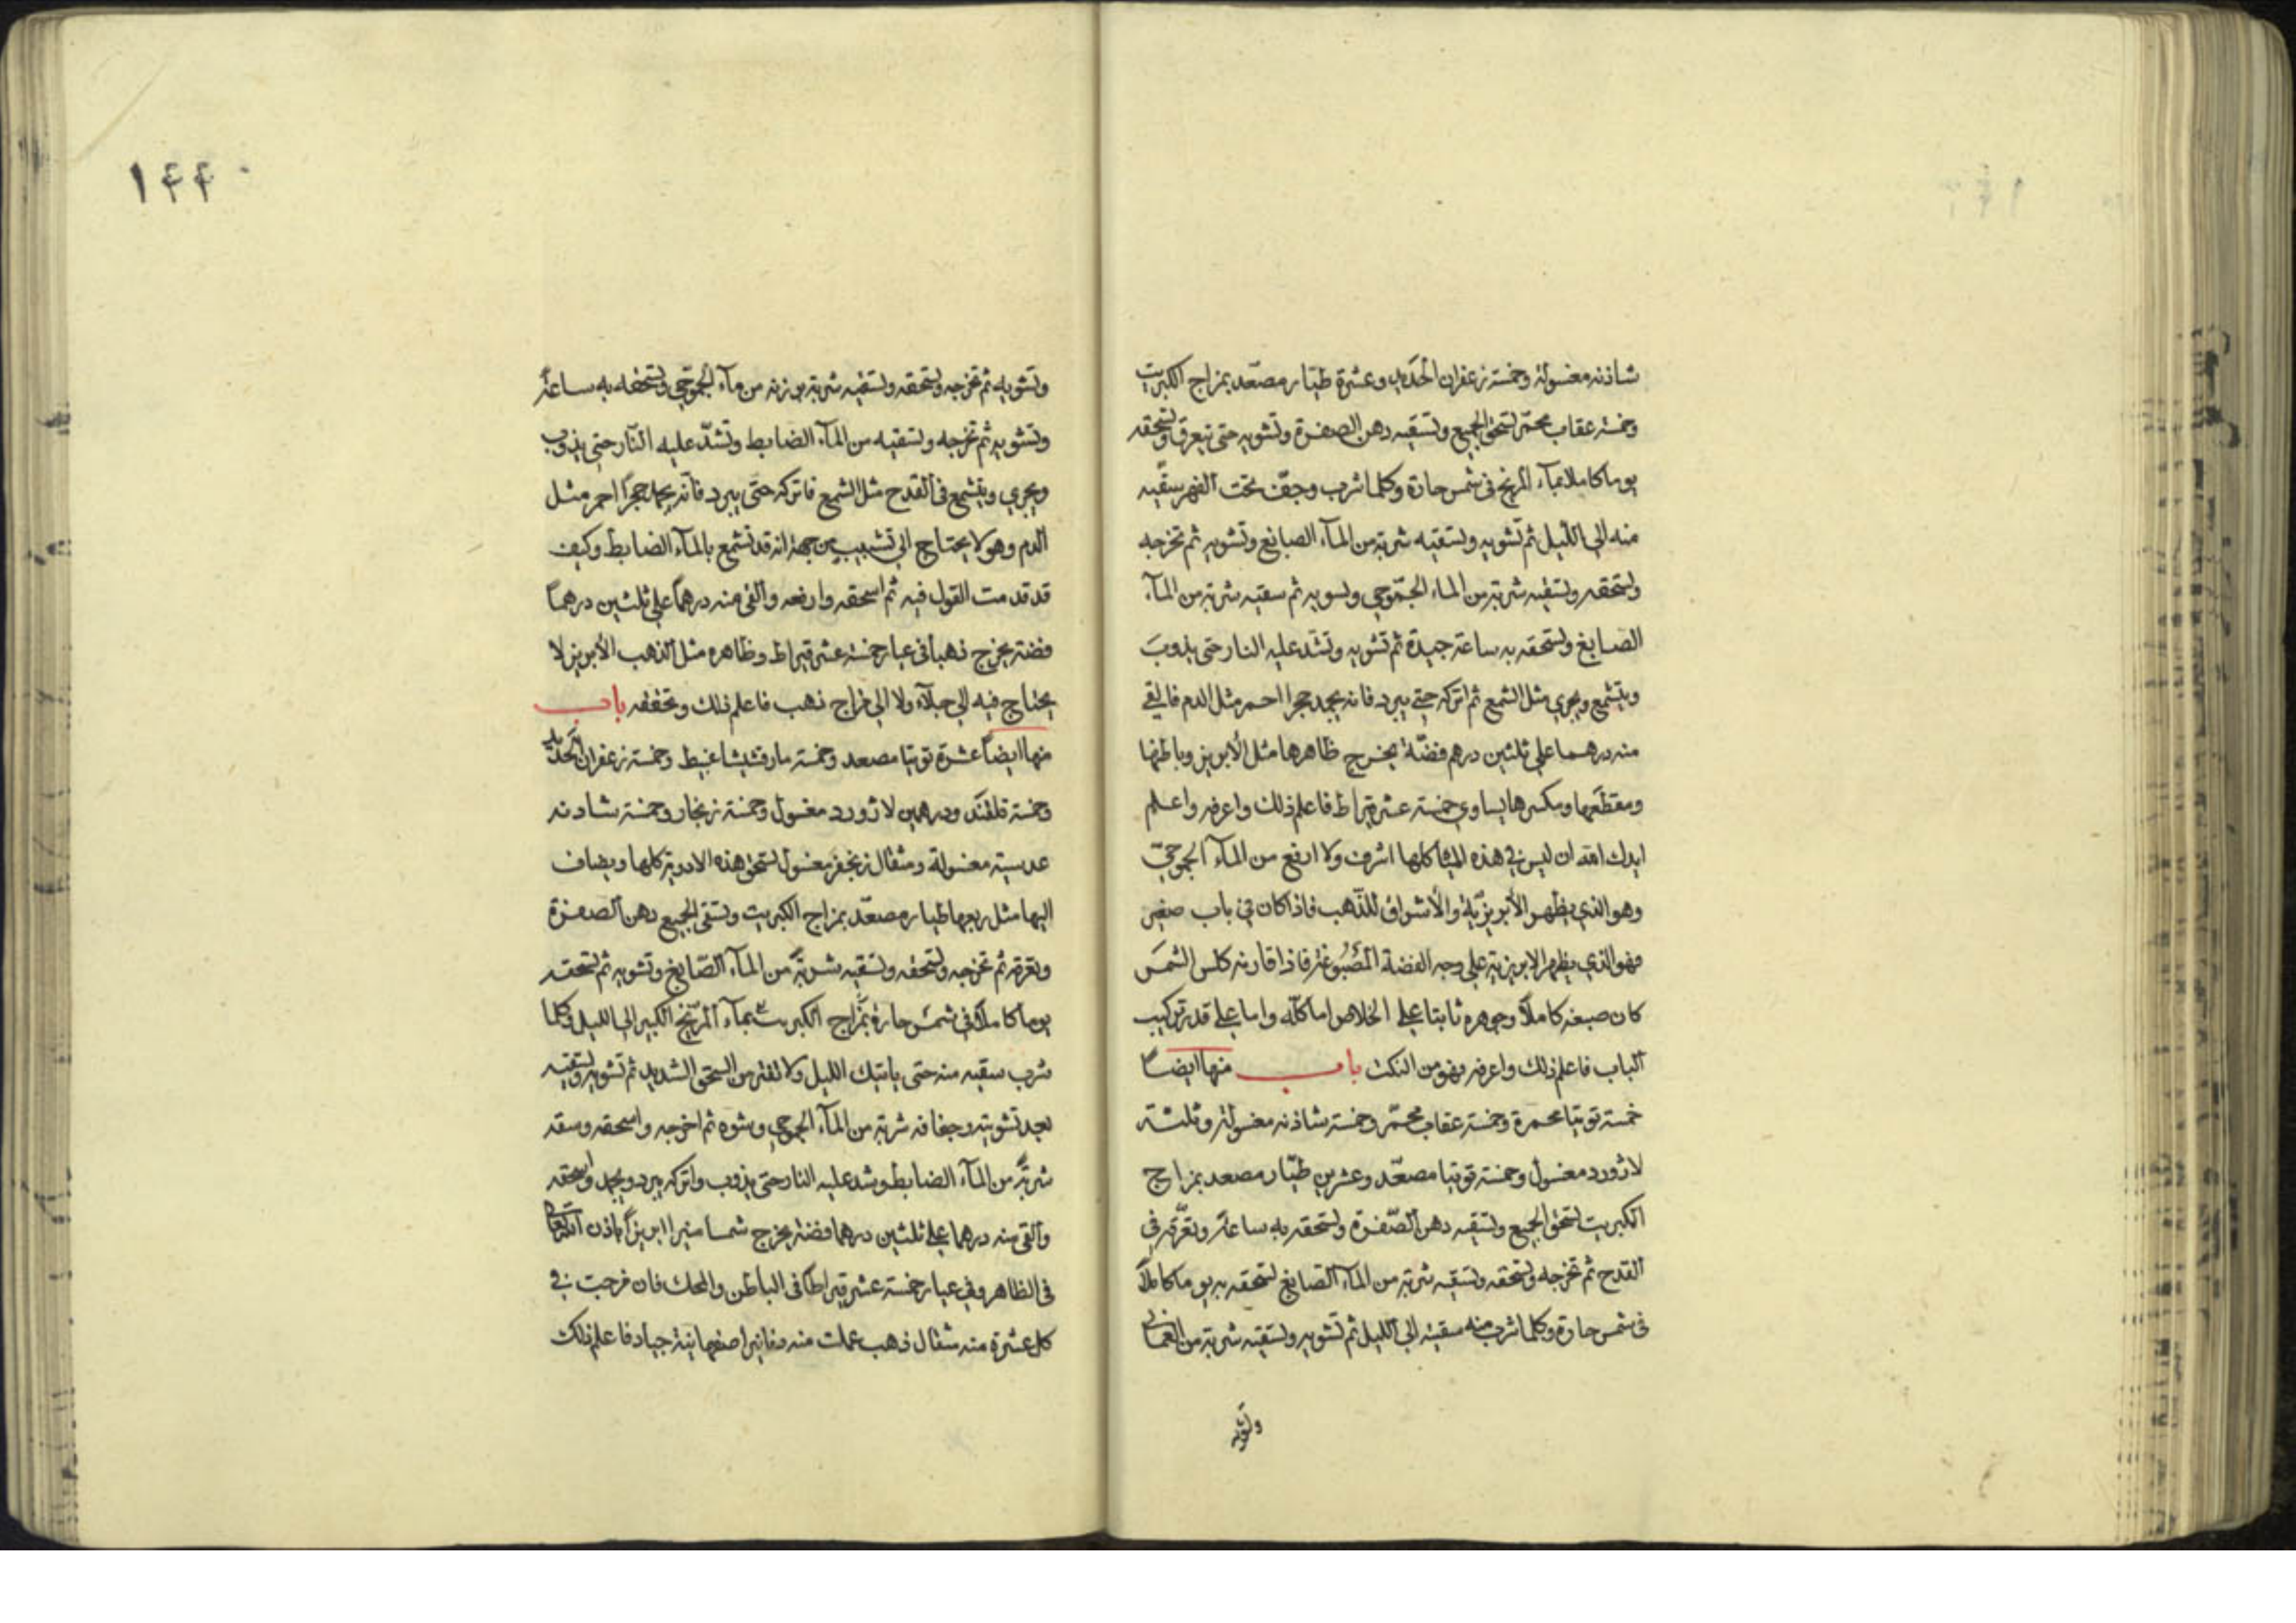 شاذنه مغسولة وخمسة زعفران الحديد وعشرة طيار مصعد بمزاج الكبريت
وخمسة عقاب محمر تسحق الجميع وتسقيه دهن الصفرة وتشويه حتى تعرقه وتسحقه
يوما كاملا بماء المريخ في شمس حارة وكلما شرب وجف تحت الفهر سقيه
منه الى الليل ثم تشويه وتسقيه شربة من الماء الصابغ وتشويه ثم تخرجه
وتسحقه وتسقيه شربة من الماء الجموحي وتشويه ثم سقيه شربة من الماء
الصابغ وتسحقه به ساعة جيدة ثم تشويه وتشد عليه النار حتى يذوب
ويتشمع ويجري مثل الشمع ثم اتركه حتى يبرد فانه يجمد حجرا احمر مثل الدم فالقي
منه درهما على ثلثين درهم فضة يخرج ظاهرها مثل الابريز وباطنها
ومقطعها ومكسرها يساوي خمسة عشر قيراط فاعلم ذلك واعرفه واعلم
ايدك الله ان ليس في هذه المياه كلها اشرف ولا ارفع من الماء الجموحي
وهو الذي يظهر الأبريزية والأشراق للذهب فاذا كان في باب صغير
فهو الذي يظهر الابريزية على وجه الفضة المصبوغة فاذا قارنه كلس الشمس
كان صبغه كاملا وجوهره ثابتا على الخلاص اما كله واما على قدر تركيب
الباب فاعلم ذلك واعرفه فهو من النكت باب منها ايضا
خمسة توتيا محمرة وخمسة عقاب محمر وخمسة شاذنه مغسولة وثلثة
لاژورد مغسول وخمسة توتيا مصعد وعشرين طيار مصعد بمزاج
الكبريت تسحق الجميع وتسقيه دهن الصفرة وتسحقه به ساعة وتعرقه في
القدح ثم تخرجه وتسحقه وتسقيه شربة من الماء الصابغ تسحقه به يوما كاملا
في شمس حارة وكلما شرب منه سقيته الى الليل ثم تشويه وتسقيه شربة من
وتشويه
١٤٤٠
وتشويه ثم تخرجه وتسحقه وتسقيه شربة من ماء الجموحي وتسحقه به ساعة
وتشويه ثم تخرجه وتسقيه من الماء الضابط وتشد عليه النار حتى يذوب
ويجري ويتشمع في القدح مثل الشمع فاتركه حتى يبرد فانه يجمد حجرا احمر مثل
الدم وهو لا يحتاج الى تشبيب من جهة انه قد تشمع بالماء الضابط وكيف
قد قدمت القول فيه ثم اسحقه وارفعه والقى منه درهما على ثلثين درهما
فضة يخرج ذهبا في عيار خمسة عشر قيراط وظاهره مثل الذهب الأبريز لا
يحتاج فيه الى جلاء ولا الى خراج ذهب فاعلم ذلك وتحققه باب
منها ايضا عشرة توتيا مصعد وخمسة مارقشيشا غبيط وخمسة زعفران الحديد
وخمسة قلقند ودرهمين لاژورد مغسول وخمسة زنجار وخمسة شادنه
عدسية مغسولة ومثقال زنجفر مغسول تسحق هذه الادوية كلها ويضاف
اليها مثل ربعها طيار مصعد بمزاج الكبريت وتسقى الجميع دهن الصفرة
وتعرقه ثم تخرجه وتسحقه وتسقيه شربة من الماء الصابغ وتشويه ثم تسحقه
يوما كاملا في شمس حارة بمزاج الكبريت بماء المريخ الكبير الى الليل فكلما
شرب سقيه منه حتى ياتيك الليل ولا تفتر من السحق الشديد ثم تشويه وتسقيه
بعد تشويته وجفافه شربة من الماء الجموحي وشوه ثم اخرجه واسحقه وسقه
شربة من الماء الضابط وشد عليه النار حتى يذوب واتركه يبرد ويجمد واسحقه
والقى منه درهما على ثلثين درهما فضة يخرج شمسا منيرا ابريزا باذن الله تعالى
في الظاهر وفي عيار خمسة عشر قيراطا في الباطن والمحك فان مزجت في
كل عشرة منه مثقال ذهب عملت منه دنانير اصفهانية جياد فاعلم ذلك